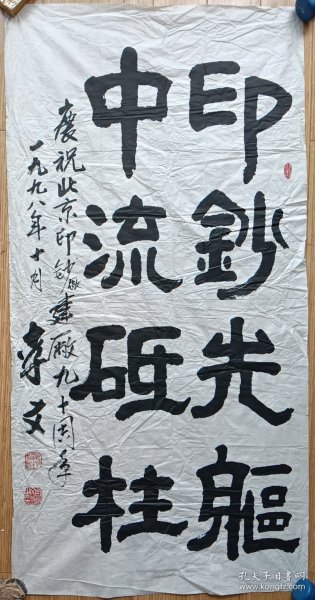 印鈔先軀
中流砥柱
慶祝北京印鈔廠建廠九十周年
一九九八年十月
孔夫子旧书网
www.kongfz.com